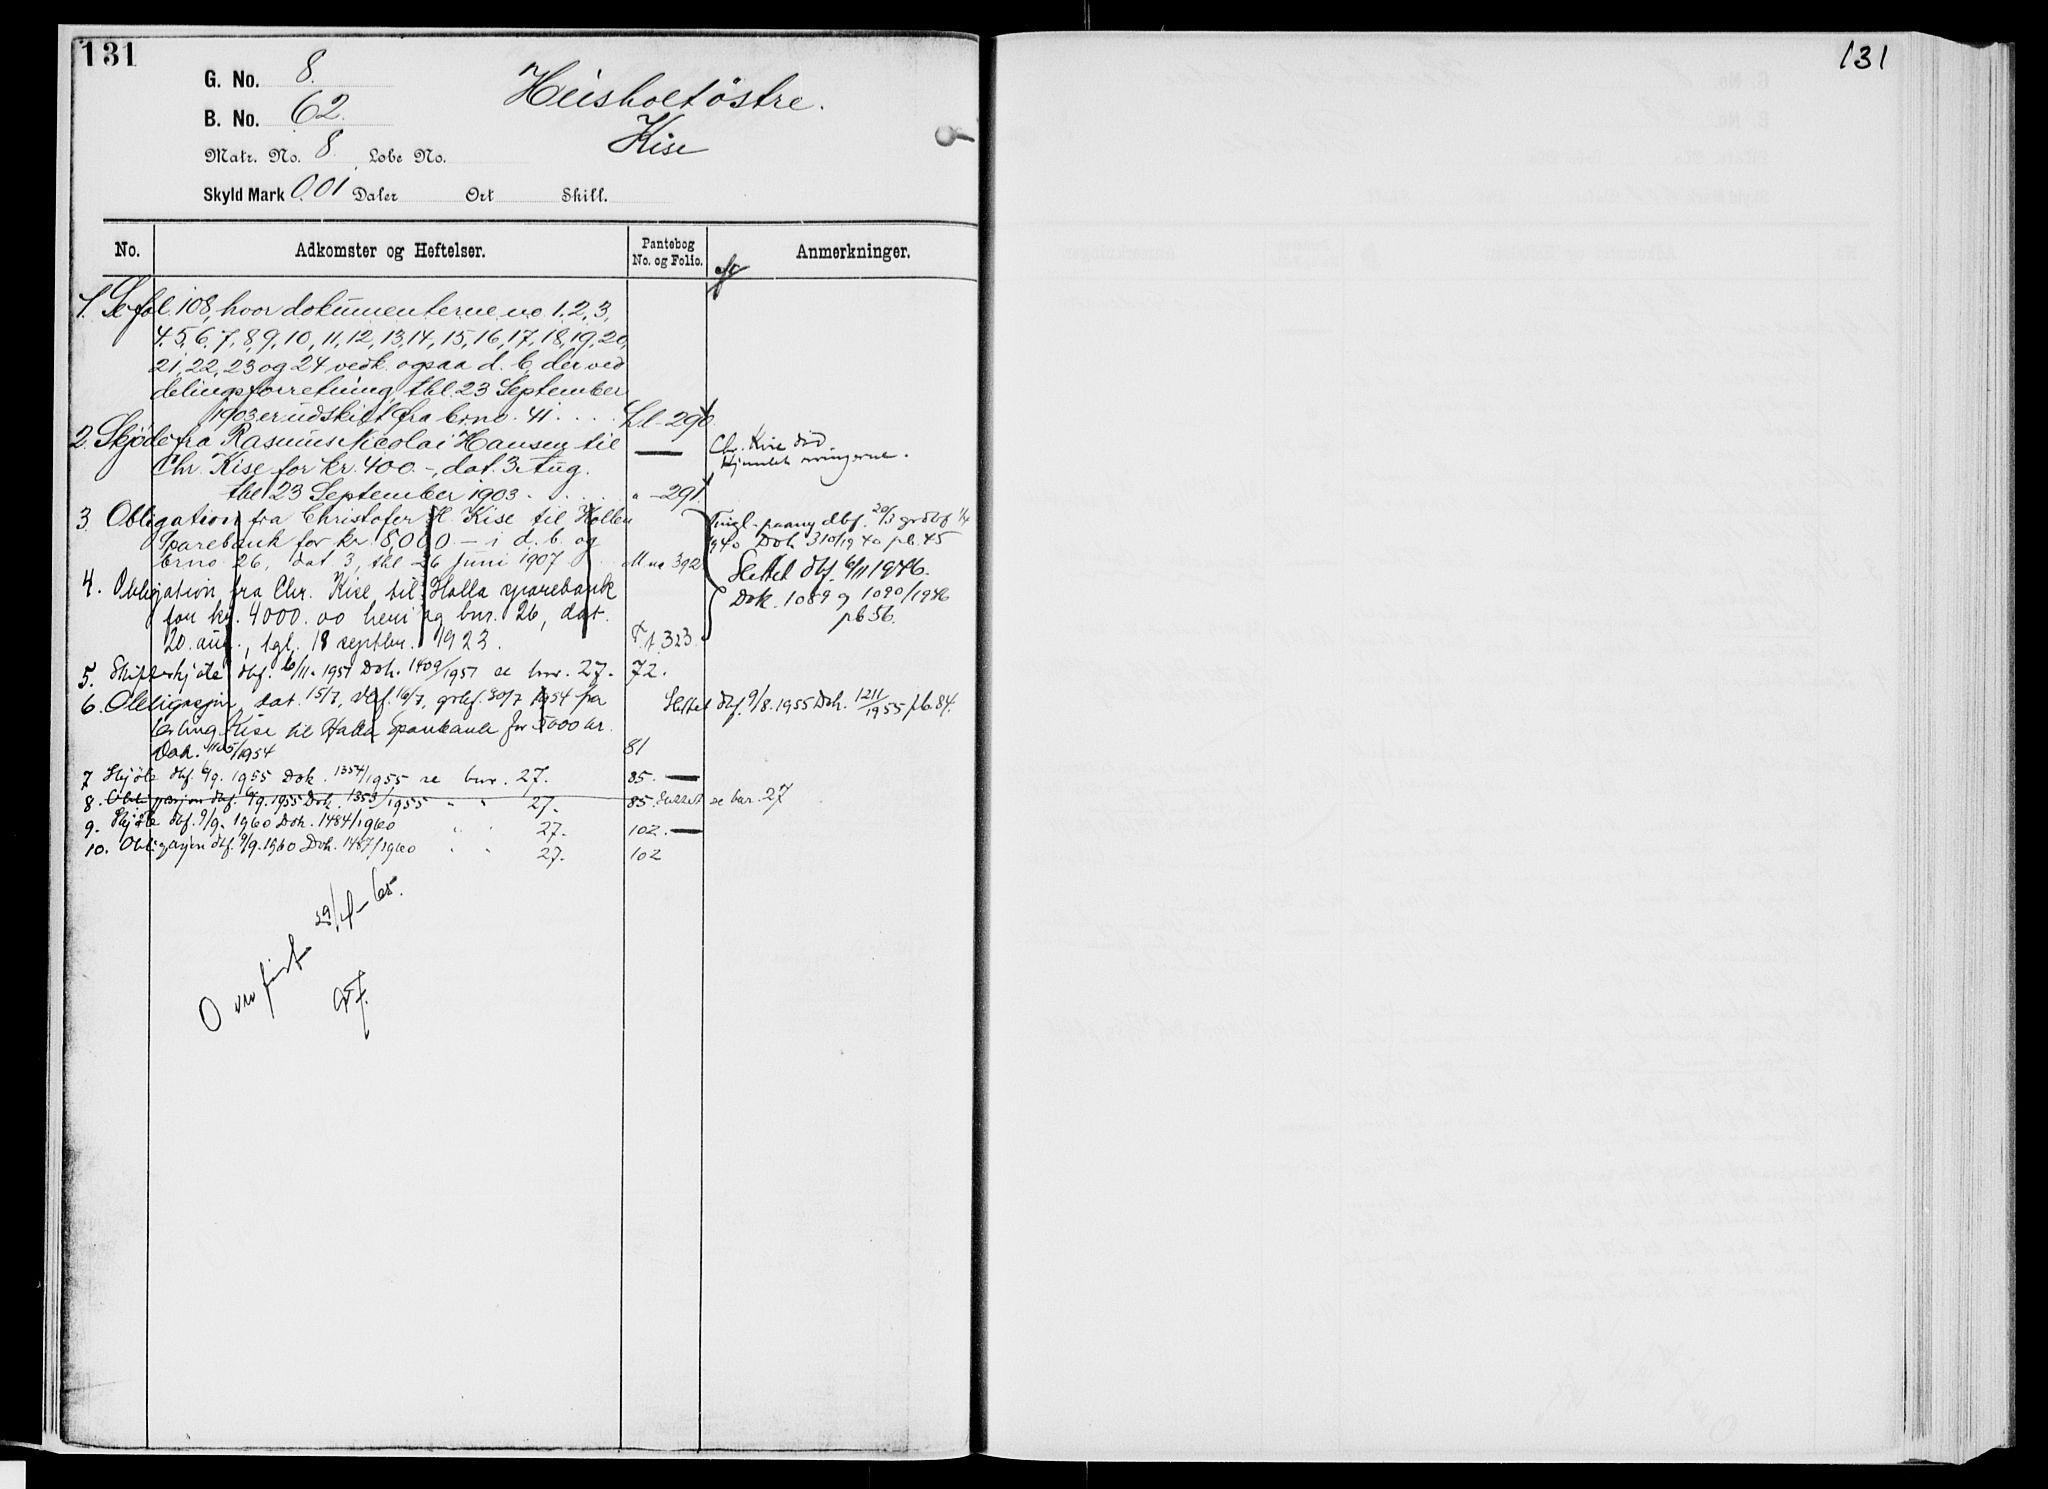 131
G. No. 8.
B. No. 62.
Matr. No. 8. Løbe No.
Skyld Mark 0.01 Daler Ort Skill.
Heisholt østre.
Kise
No. Adkomster og Heftelser. Pantebog No. og Folio. Anmerkninger.
1. Se fol. 108, hvor dokumenterne no. 1, 2, 3,
4, 5, 6, 7, 8, 9, 10, 11, 12, 13, 14, 15, 16, 17, 18, 19, 20,
21, 22, 23 og 24 vedk. ogsaa d. b. der ved
delingsforretning, thl. 23 September
1903 er udskilt fra brno. 41 . . . . Ll - 290.
2. Skjøde fra Rasmus Nicolai Hansen til
Chr. Kise for kr. 400.-, dat. 3 Aug.
thl 23 September 1903 . . . . " - 291.
Chr. Kise død
3. Obligation fra Christofer H. Kise til Hollen
Sparebank for kr. 8,000 - i d. b. og
brno 26, dat 3, thl 26 Juni 1907 392
Tingl. paany dbf. 20/3 grdbf 1/4
1940 Dok 310/1940 pb. 45
Slettet dbf. 6/11 1946.
Dok. 1089 og 1090/1946
pb 56.
4. Obligation fra Chr. Kise til Holla sparebank
for kr. 4000.00 heri og bnr. 26, dat.
20. aug., tgl. 18 septbr. 1923. 323
5. Skifteskjøte dbf. 6/11-1951 Dok. 1409/1951 se bnr. 27. 72.
6. Obligasjon, dat. 15/7, dbf. 16/7, grbf. 30/7 1954 fra
Erling Kise til Holla Sparebank for 5000 kr.
Dok. 1105/1954 81
Slettet dbf. 9/8. 1955 Dok. 1211/1955 pb. 84.
7 Skjøte dbf. 6/9. 1955 Dok. 1354/1955 se bnr. 27. 85.
8. Obligasjon dbf. 6/9. 1955 Dok. 1353/1955 " " 27. 85. Slettet se bnr. 27
9. Skjøte dbf. 9/9. 1960 Dok. 1484/1960 " " 27. 102.
10. Obligasjon dbf. 9/9. 1960 Dok. 1487/1960 " " 27. 102
Overført 29/4-65.
131